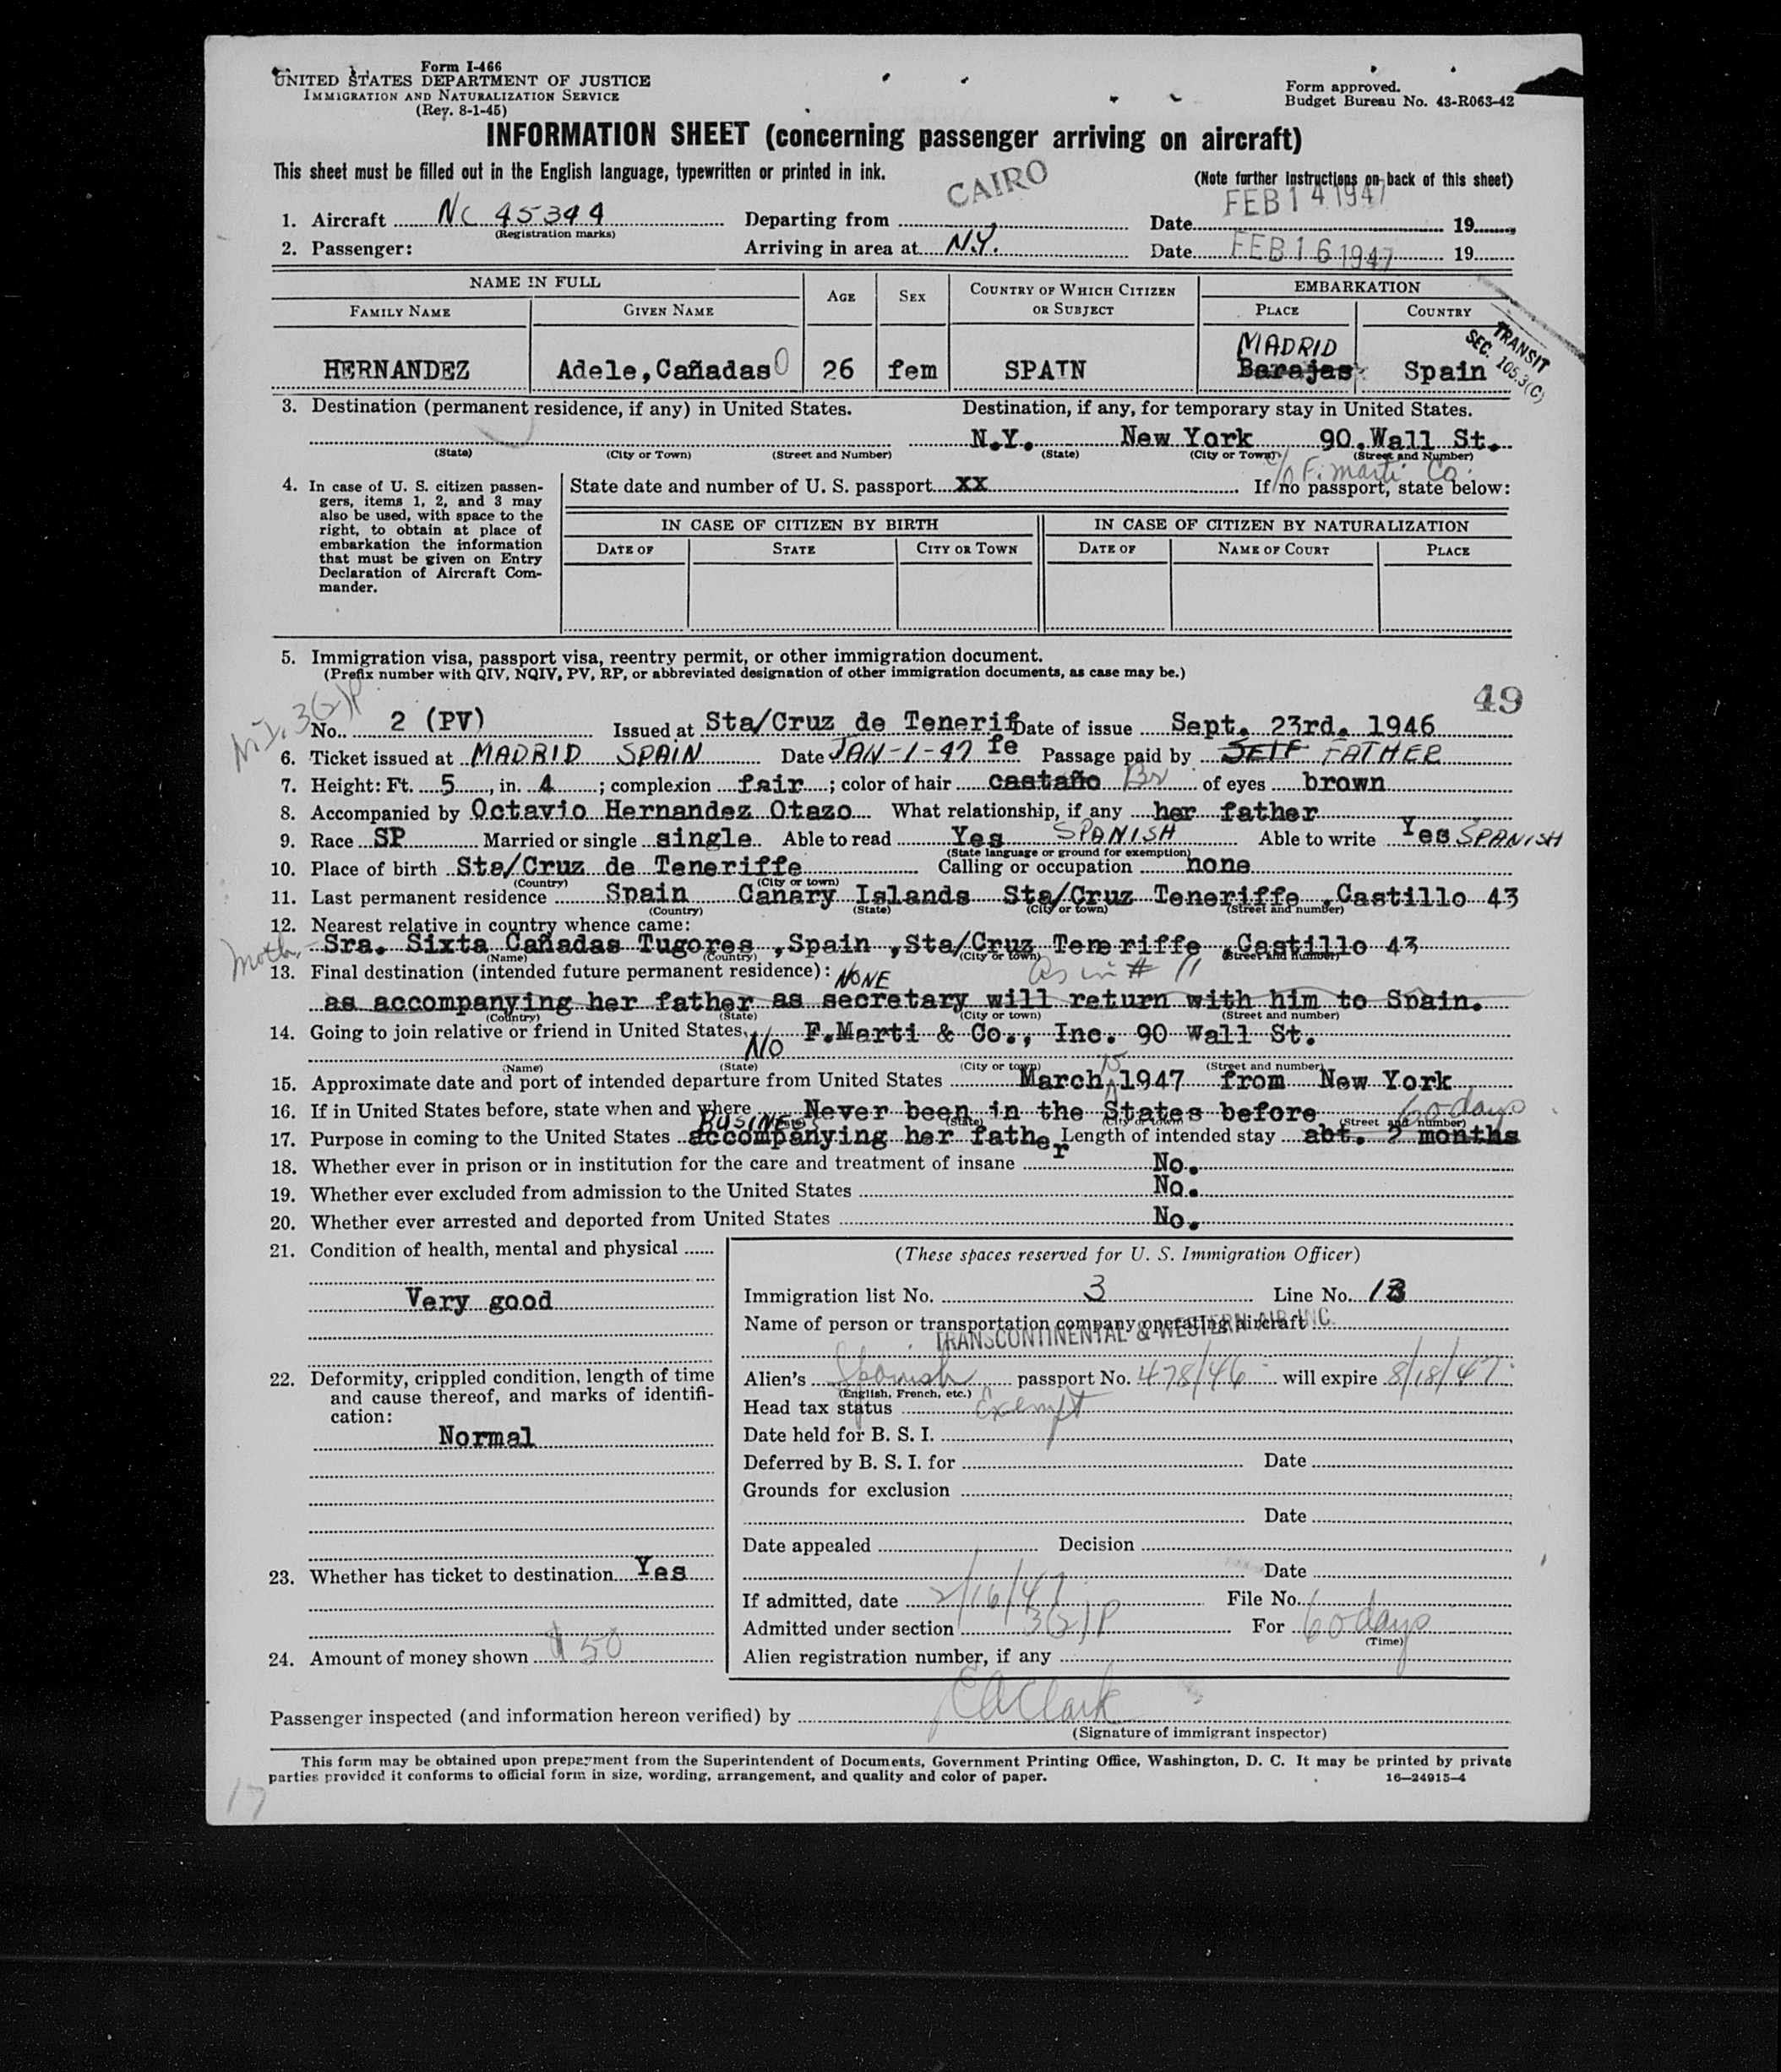 Form I-466
UNITED STATES DEPARTMENT OF JUSTICE
IMMIGRATION AND NATURALIZATION SERVICE
(Rev. 8-1-45)
Form approved.
Budget Bureau No. 43-R063-42
INFORMATION SHEET (concerning passenger arriving on aircraft)
This sheet must be filled out in the English language, typewritten or printed in ink.
(Note further instructions on back of this sheet)
1. Aircraft NC 45344 Departing from CAIRO Date FEB 14 1947 19
(Registration marks)
2. Passenger: Arriving in area at N.Y. Date FEB 16 1947 19
NAME IN FULL AGE SEX COUNTRY OF WHICH CITIZEN OR SUBJECT EMBARKATION
FAMILY NAME GIVEN NAME PLACE COUNTRY
TRANSIT SEC. 105.3(C)
MADRID
HERNANDEZ Adele,Cañadas 26 fem SPAIN Barajas Spain
3. Destination (permanent residence, if any) in United States. Destination, if any, for temporary stay in United States.
N.Y. New York 90.Wall St.
(State) (City or Town) (Street and Number) (State) (City or Town) (Street and Number)
c/o F. Marti Co.
4. In case of U. S. citizen passengers, items 1, 2, and 3 may also be used, with space to the right, to obtain at place of embarkation the information that must be given on Entry Declaration of Aircraft Commander.
State date and number of U. S. passport xx If no passport, state below:
IN CASE OF CITIZEN BY BIRTH IN CASE OF CITIZEN BY NATURALIZATION
DATE OF STATE CITY OR TOWN DATE OF NAME OF COURT PLACE
5. Immigration visa, passport visa, reentry permit, or other immigration document.
(Prefix number with QIV, NQIV, PV, RP, or abbreviated designation of other immigration documents, as case may be.)
49
No. 2 (PV) Issued at Sta/Cruz de Teneriffe Date of issue Sept. 23rd. 1946
6. Ticket issued at MADRID SPAIN Date JAN-1-47 Passage paid by SELF FATHER
7. Height: Ft. 5, in. 4; complexion fair; color of hair castaño Br of eyes brown
8. Accompanied by Octavio Hernandez Otazo What relationship, if any her father
9. Race SP Married or single single Able to read Yes SPANISH Able to write Yes SPANISH
(State language or ground for exemption)
10. Place of birth Sta/Cruz de Teneriffe Calling or occupation none
(Country) (City or town)
11. Last permanent residence Spain Canary Islands Sta/Cruz Teneriffe ,Castillo 43
(Country) (State) (City or town) (Street and number)
12. Nearest relative in country whence came:
Moth. Sra. Sixta Cañadas Tugores ,Spain ,Sta/Cruz Teneriffe ,Castillo 43
(Name) (Country) (City or town) (Street and number)
13. Final destination (intended future permanent residence): NONE as in # 11
as accompanying her father as secretary will return with him to Spain.
(Country) (State) (City or town) (Street and number)
14. Going to join relative or friend in United States. NO F.Marti & Co., Inc. 90 Wall St.
(Name) (State) (City or town) (Street and number)
15. Approximate date and port of intended departure from United States March 15 1947 from New York
16. If in United States before, state when and where Never been in the States before
(State) (City or town) (Street and number)
BUSINESS 60 days
17. Purpose in coming to the United States accompanying her father Length of intended stay abt. 2 months
18. Whether ever in prison or in institution for the care and treatment of insane No.
19. Whether ever excluded from admission to the United States No.
20. Whether ever arrested and deported from United States No.
21. Condition of health, mental and physical
Very good
22. Deformity, crippled condition, length of time and cause thereof, and marks of identification:
Normal
23. Whether has ticket to destination Yes
24. Amount of money shown $50
(These spaces reserved for U. S. Immigration Officer)
Immigration list No. 3 Line No. 13
Name of person or transportation company operating aircraft
TRANSCONTINENTAL & WESTERN AIR INC.
Alien's Spanish passport No. 478/46 will expire 8/18/47
(English, French, etc.)
Head tax status Exempt
Date held for B. S. I.
Deferred by B. S. I. for Date
Grounds for exclusion
Date
Date appealed Decision
Date
If admitted, date 2/16/47 File No.
Admitted under section 3(2)P For 60 days
(Time)
Alien registration number, if any
Passenger inspected (and information hereon verified) by EA Clark
(Signature of immigrant inspector)
This form may be obtained upon prepayment from the Superintendent of Documents, Government Printing Office, Washington, D. C. It may be printed by private
parties provided it conforms to official form in size, wording, arrangement, and quality and color of paper. 16—24915-4
17